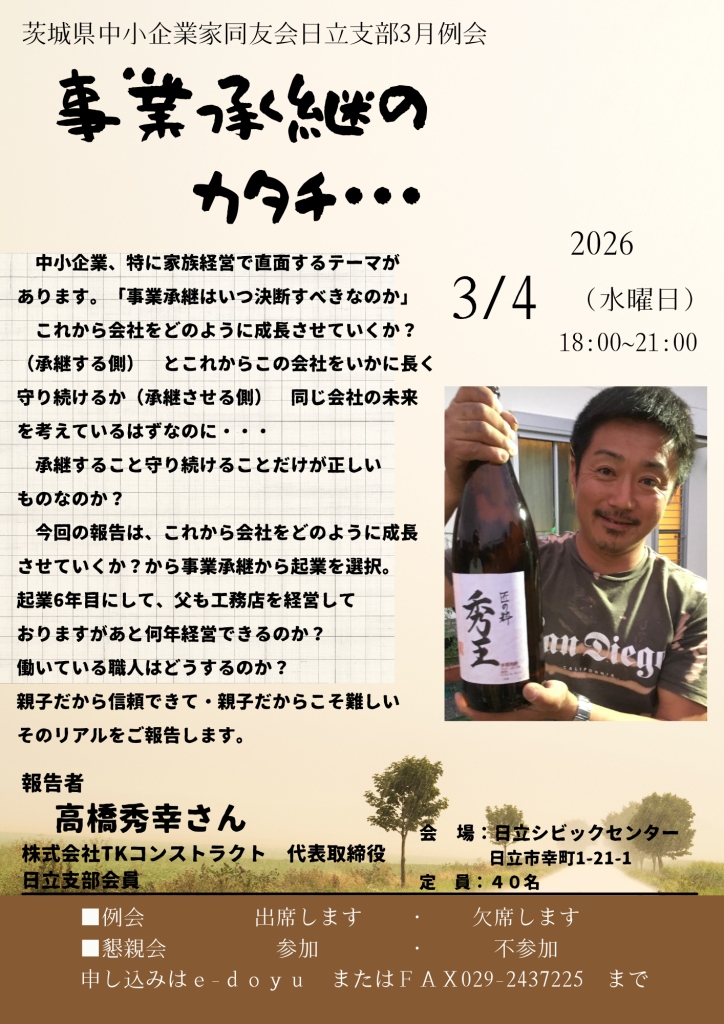 茨城県中小企業家同友会日立支部3月例会
事業承継の
カタチ・・・
2026
3/4 （水曜日）
18:00~21:00
中小企業、特に家族経営で直面するテーマが
あります。「事業承継はいつ決断すべきなのか」
これから会社をどのように成長させていくか？
（承継する側）　とこれからこの会社をいかに長く
守り続けるか（承継させる側）　同じ会社の未来
を考えているはずなのに・・・
承継すること守り続けることだけが正しい
ものなのか？
今回の報告は、これから会社をどのように成長
させていくか？から事業承継から起業を選択。
起業6年目にして、父も工務店を経営して
おりますがあと何年経営できるのか？
働いている職人はどうするのか？
親子だから信頼できて・親子だからこそ難しい
そのリアルをご報告します。
匠の絆
秀王
San Diego
CALIFORNIA
報告者
高橋秀幸さん
株式会社TKコンストラクト　代表取締役
日立支部会員
会　場：日立シビックセンター
日立市幸町1-21-1
定　員：４０名
■例会　出席します　・　欠席します
■懇親会　参加　・　不参加
申し込みはｅ-ｄｏｙｕ　またはＦＡＸ029-2437225　まで